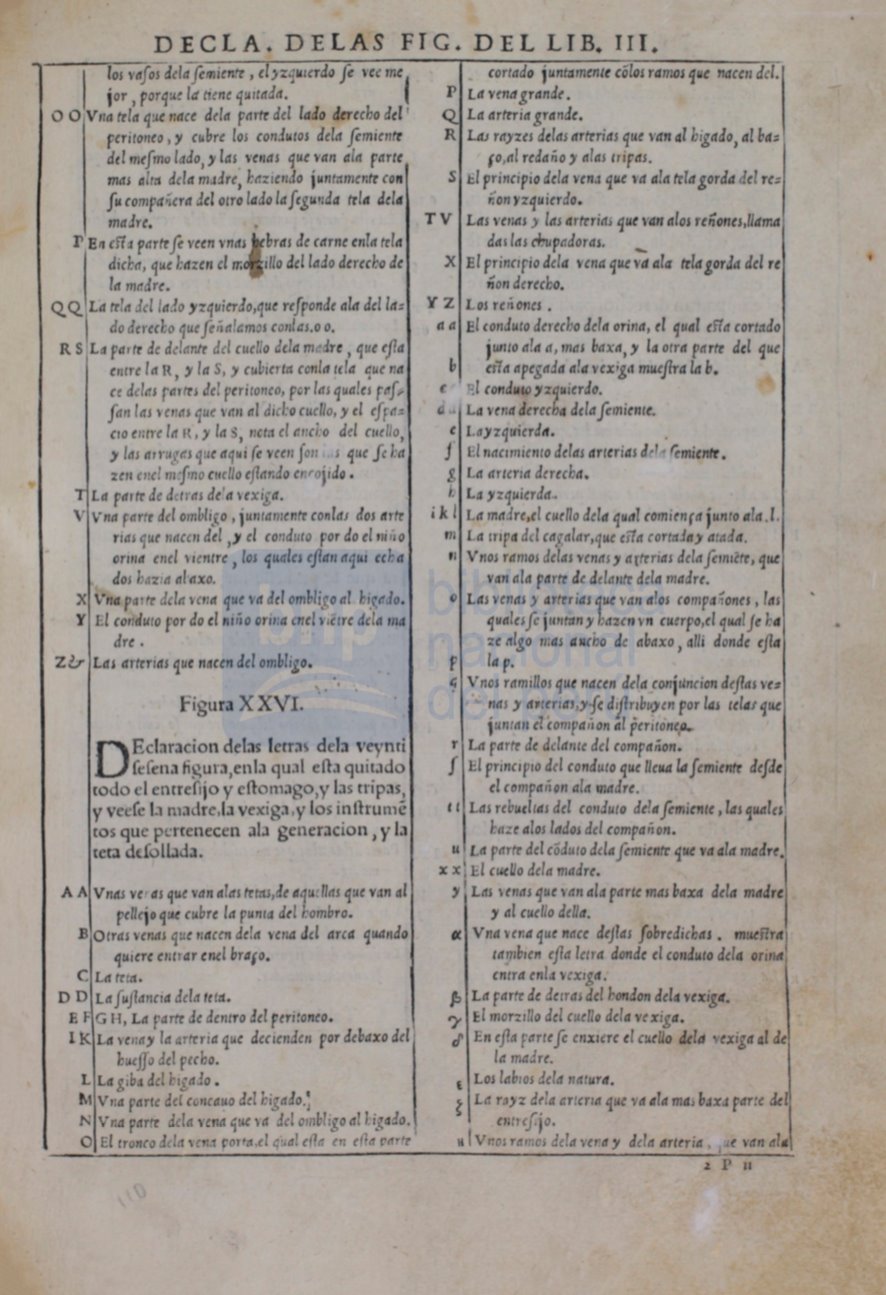 DECLA. DELAS FIG. DEL LIB. III.
los vasos dela semiente, el yzquierdo se vee me
jor, porque la tiene quitada.
O O Vna tela que nace dela parte del lado derecho del
peritoneo, y cubre los condutos dela semiente
del mesmo lado, y las venas que van ala parte
mas alta dela madre, haziendo juntamente con
su compañera del otro lado la segunda tela dela
madre.
P En esta parte se veen vnas hebras de carne enla tela
dicha, que hazen el morzillo del lado derecho de
la madre.
QQ La tela del lado yzquierdo, que responde ala del la-
do derecho que señalamos conlas. o o.
R S La parte de delante del cuello dela madre, que esta
entre la R, y la S, y cubierta conla tela que na
ce delas partes del peritoneo, por las quales pas-
san las venas que van al dicho cuello, y el espa-
cio entre la R, y la S, nota el ancho del cuello,
y las arrugas que aqui se veen son s que se ha
zen enel mesmo cuello estando encojido.
T La parte de detras dela vexiga.
V Vna parte del ombligo, juntamente conlas dos arte
rias que nacen del, y el conduto por do el niño
orina enel vientre, los quales estan aqui echa
dos hazia abaxo.
X Vna parte dela vena que va del ombligo al higado.
Y El conduto por do el niño orina enel viētre dela ma
dre.
Z& Las arterias que nacen del ombligo.
Figura XXVI.
DEclaracion delas letras dela veynti
sesena figura, enla qual esta quitado
todo el entresijo y estomago, y las tripas,
y veese la madre, la vexiga, y los instrumē
tos que pertenecen ala generacion, y la
teta desollada.
A A Vnas venas que van alas tetas, de aquellas que van al
pellejo que cubre la punta del hombro.
B Otras venas que nacen dela vena del arca quando
quiere entrar enel braço.
C La teta.
D D La sustancia dela teta.
E F G H, La parte de dentro del peritoneo.
I K La vena y la arteria que decienden por debaxo del
huesso del pecho.
L La giba del higado.
M Vna parte del concauo del higado.
N Vna parte dela vena que va del ombligo al higado.
O El tronco dela vena porta, el qual esta en esta parte
cortado juntamente cōlos ramos que nacen del.
P La vena grande.
Q La arteria grande.
R Las rayzes delas arterias que van al higado, al ba-
ço, al redaño y alas tripas.
S El principio dela vena que va ala tela gorda del re-
ñon yzquierdo.
T V Las venas y las arterias que van alos reñones, llama
das las chupadoras.
X El principio dela vena que va ala tela gorda del re
ñon derecho.
Y Z Los reñones.
a a El conduto derecho dela orina, el qual esta cortado
junto ala a, mas baxa, y la otra parte del que
b esta apegada ala vexiga muestra la b.
c El conduto yzquierdo.
d La vena derecha dela semiente.
e La yzquierda.
f El nacimiento delas arterias dela semiente.
g La arteria derecha.
h La yzquierda.
i k l La madre, el cuello dela qual comiença junto ala .l.
m La tripa del cagalar, que esta cortada y atada.
n Vnos ramos delas venas y arterias dela semiēte, que
van ala parte de delante dela madre.
o Las venas y arterias que van alos compañones, las
quales se juntan y hazen vn cuerpo, el qual se ha
ze algo mas ancho de abaxo, alli donde esta
p la p.
q Vnos ramillos que nacen dela conjuncion destas ve-
nas y arterias, y se distribuyen por las telas que
juntan el compañon al peritoneo.
r La parte de delante del compañon.
s El principio del conduto que lleua la semiente desde
el compañon ala madre.
t t Las rebueltas del conduto dela semiente, las quales
haze alos lados del compañon.
u La parte del cōduto dela semiente que va ala madre.
x x El cuello dela madre.
y Las venas que van ala parte mas baxa dela madre
y al cuello della.
α Vna vena que nace destas sobredichas. muestra
tambien esta letra donde el conduto dela orina
entra enla vexiga.
β La parte de detras del hondon dela vexiga.
γ El morzillo del cuello dela vexiga.
δ En esta parte se enxiere el cuello dela vexiga al de
la madre.
ε Los labios dela natura.
ξ La rayz dela arteria que va ala mas baxa parte del
entresijo.
Vnos ramos dela vena y dela arteria, que van ala
2 P II
110